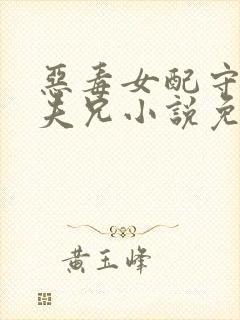 惡毒女配守
夫兄小說免
黃玉峰